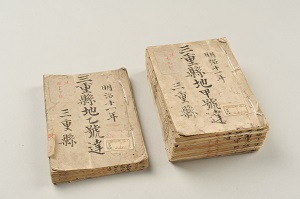 明治十一年
三重縣地乙號達
三重縣
明治十一年
三重縣地甲號達
三重縣